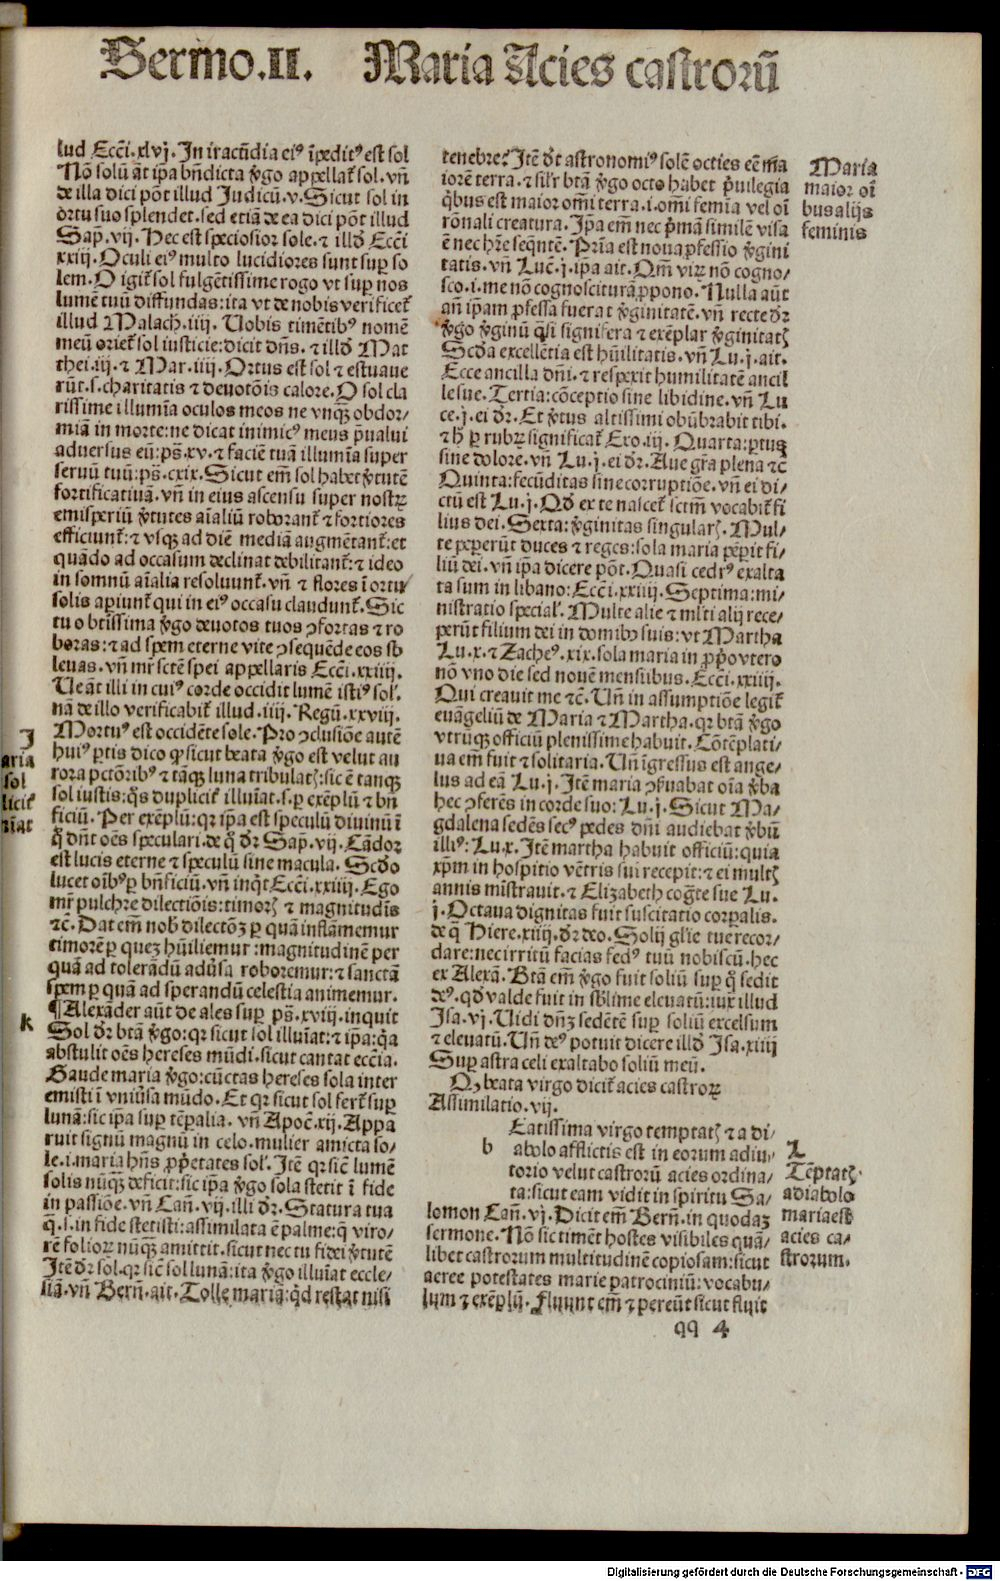 Sermo.II. Maria Acies castrorū
lud Ecci.xlvj. In iracūdia eiꝰ īpeditꝰ est sol
Nō solū āt ip̄a bn̄dicta v̄go appellat̄ sol. vn̄
de illa dici pōt illud Judicū.v. Sicut sol in
ortu suo splendet. sed etiā de ea dici pōt illud
Sap̄.vij. Hec est speciosior sole. ⁊ illd̄ Ecci
xxiij. Oculi eiꝰ multo lucidiores sunt sup̄ so
lem. O igit̄ sol fulgētissime rogo vt sup̄ nos
lumē tuū diffundas: ita vt de nobis verificet̄
illud Malach.iiij. Uobis timētibꝰ nomē
meū oriet̄ sol iusticie: dicit dn̄s. ⁊ illd̄ Mat
thei.iij. ⁊ Mar.iiij. Ortus est sol ⁊ estuaue
rūt. s. charitatis ⁊ deuotōis calore. O sol cla
rissime illumīa oculos meos ne vnqȝ obdor/
miā in morte: ne dicat inimicꝰ meus p̄ualui
aduersus eū: ps̄.xv. ⁊ faciē tuā illumīa super
seruū tuū: ps̄.cxix. Sicut em̄ sol habet v̄tutē
fortificatiuā. vn̄ in eius ascensu super nostrꝝ
emisperiū v̄tutes aīaliū roborant̄ ⁊ fortiores
efficiunt̄: ⁊ vsqȝ ad diē mediā augmētant̄: et
quādo ad occasum declinat debilitant̄: ⁊ ideo
in somnū aīalia resoluunt̄. vn̄ ⁊ flores ī ortu/
solis ap̄iunt̄ qui in eiꝰ occasu claudunt̄. Sic
tu o btīssima v̄go deuotos tuos ꝯfortas ⁊ ro
boras: ⁊ ad spem eterne vite ꝯsequēde eos sb̄
leuas. vn̄ mr̄ sctē spei appellaris Ecci.xxiiij.
Ue āt illi in cuiꝰ corde occidit lumē istiꝰ sol̓.
nā de illo verificabit̄ illud.iiij. Regū.xxviij.
Mortuꝰ est occidēte sole. Pro ꝯclusiōe autē
huiꝰ ꝑtis dico ꝙ sicut beata v̄go est velut au
rora pctōribꝰ ⁊ tāqȝ luna tribulatꝭ: sic ē tanqȝ
sol iustis: q̄s duplicit̄ illuīat. s. ꝑ exēplū ⁊ bn̄
ficiū. Per exēplū: qꝛ ip̄a est speculū diuinū ī
q̄ dn̄t oēs speculari. de q̄ dr̄ Sap̄.vij. Cādor
est lucis eterne ⁊ speculū sine macula. Scd̄o
lucet oībꝰ ꝑ bn̄ficiū. vn̄ inq̄t Ecci.xxiiij. Ego
mr̄ pulchre dilectiōis: timorꝭ ⁊ magnitudīs
⁊c̄. Dat em̄ nob̄ dilectōȝ ꝑ quā inflāmemur
timorē ꝑ quez hūiliemur: magnitudinē per
quā ad tolerādū adu̓sa roboremur: ⁊ sanctā
spem ꝑ quā ad sperandū celestia animemur.
¶Alexāder aūt de ales sup̄ ps̄.xviij. inquit
Sol dr̄ btā v̄go: qꝛ sicut sol illuīat: ⁊ ip̄a: q̄a
abstulit oēs hereses mūdi. sicut cantat eccīa.
Gaude maria v̄go: cūctas hereses sola inter
emisti ī vniu̓sa mūdo. Et qꝛ sicut sol fert̄ sup̄
lunā: sic ip̄a sup̄ tēꝑalia. vn̄ Apoc̄.xij. Appa
ruit signū magnū in celo. mulier amicta so/
le. i. maria hn̄s ꝓp̄etates sol̓. Itē qꝛ sicē lumē
solis nūqȝ deficit: sic ip̄a v̄go sola stetit ī fide
in passiōe. vn̄ Can̄.vij. illi dr̄. Statura tua
q̄. s. in fide stetisti: assimilata ē palme: q̄ viro/
rē folioꝝ nūqȝ amittit. sicut nec tu fidei v̄tutē
Itē dr̄ sol. qꝛ sicē sol lunā: ita v̄go illuīat eccle/
siā. vn̄ Bern̄. ait. Tolle mariā: q̄d restat nisi
J
aria
sol
licit̄
nīat
k
tenebre? Itē dr̄t astronomiꝰ solē octies eē ma
iorē terra. ⁊ sil̓r btā v̄go octo habet p̄uilegia
q̄bus est maior om̄i terra. i. om̄i femīa vel oī
rōnali creatura. Ip̄a em̄ nec p̄mā similē visa
ē nec hr̄e seq̄ntē. Pr̄ia est noua ꝓfessio v̄gini
tatis. vn̄ Luc̄.j. ip̄a ait. Qm̄ viꝝ nō cogno/
sco. i. me nō cognosciturā ꝓpono. Nulla aūt
an̄ ip̄am ꝓfessa fuerat v̄ginitatē. vn̄ recte dr̄
v̄go v̄ginū q̄si signifera ⁊ exēplar v̄ginitatꝭ
Scd̄a excellētia est hūilitatis. vn̄ Lu.j. ait.
Ecce ancilla dn̄i. ⁊ respexit humilitatē ancil
le sue. Tertia: cōceptio sine libidine. vn̄ Lu
ce.j. ei dr̄. Et v̄tus altissimi obūbrabit tibi.
⁊ h̄ ꝑ rubꝝ significat̄ Exo.iij. Quarta: ꝑtus
sine dolore. vn̄ Lu.j. ei dr̄. Aue gr̄a plena ⁊c̄
Quinta: fecūditas sine corruptiōe. vn̄ ei di/
ctū est Lu.j. Qd̄ ex te nascet̄ sctm̄ vocabit̄ fi
lius dei. Sexta: v̄ginitas singularꝭ. Mul/
te peꝑerūt duces ⁊ reges: sola maria peꝑit fi/
liū dei. vn̄ ip̄a dicere pōt. Quasi cedrꝰ exalta
ta sum in libano: Ecci.xxiiij. Septima: mi/
nistratio special̓. Multe alie ⁊ ml̓ti alij rece/
perūt filium dei in domibꝰ suis: vt Martha
Lu.x. ⁊ Zacheꝰ.xix. sola maria in ꝓp̄o vtero
nō vno die sed nouē mensibus. Ecci.xxiiij.
Qui creauit me ⁊c̄. Un̄ in assumptiōe legit̄
euāgeliū de Maria ⁊ Martha. qꝛ btā v̄go
vtruqȝ officiū plenissime habuit. Cōtēplati/
ua em̄ fuit ⁊ solitaria. Un̄ īgressus est ange/
lus ad eā Lu.j. Itē maria ꝯẜuabat oīa v̄ba
hec ꝯferēs in corde suo: Lu.j. Sicut Ma/
gdalena sedēs secꝰ pedes dn̄i audiebat v̄bū
illiꝰ: Lu.x. Itē martha habuit officiū: quia
xp̄m in hospitio vētris sui recepit: ⁊ ei multꝭ
annis mīstrauit. ⁊ Elizabeth cog̓te sue Lu.
j. Octaua dignitas fuit suscitatio corꝑalis.
de q̄ Hiere.xiiij. dr̄ deo. Solij gl̓ie tue recor/
dare: nec irritū facias fedꝰ tuū nobiscū. hec
ex Alexā. Btā em̄ v̄go fuit soliū sup̄ q̄ sedit
deꝰ. qd̄ valde fuit in sb̓lime eleuatū: iux̄ illud
Isa.vj. Uidi dn̄ȝ sedētē sup̄ soliū excelsum
⁊ eleuatū. Un̄ deꝰ potuit dicere illd̄ Isa.xiiij
Sup̄ astra celi exaltabo soliū meū.
Qꝫ beata virgo dicit̄ acies castroꝝ
Assimilatio.vij.
Eatissima virgo temptatꝭ ⁊ a di/
b abolo afflictis est in eorum adiu/
torio velut castrorū acies ordina/
ta: sicut eam vidit in spiritu Sa/
lomon Can̄.vj. Dicit em̄ Bern̄. in quodaȝ
sermone. Nō sic timēt hostes visibiles quā/
libet castrorum multitudinē copiosam: sicut
aeree potestates marie patrociniū: vocabu/
lum ⁊ exēplū. Fluunt em̄ ⁊ pereūt sicut fluit
Maria
maior oī
bus alijs
feminis
L
Tēptatꝭ
a diabolo
maria est
acies ca/
strorum.
qq 4
Digitalisierung gefördert durch die Deutsche Forschungsgemeinschaft - DFG